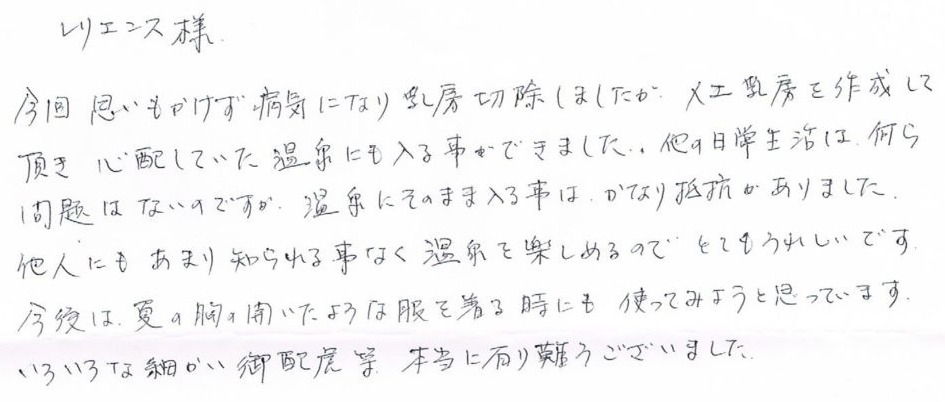 レリエンス様.
今回 思いもかけず 病気になり 乳房切除しましたが. 人工乳房を作成して
頂き 心配していた温泉にも入る事ができました.。他の日常生活は、何ら
問題はないのですが、温泉にそのまま入る事は、かなり抵抗がありました.
他人にも あまり知られる事なく 温泉を楽しめるので とてもうれしいです.
今後は、夏の胸の開いたような服を着る時にも 使ってみようと思っています.
いろいろな細かい御配慮等 本当に有り難うございました.